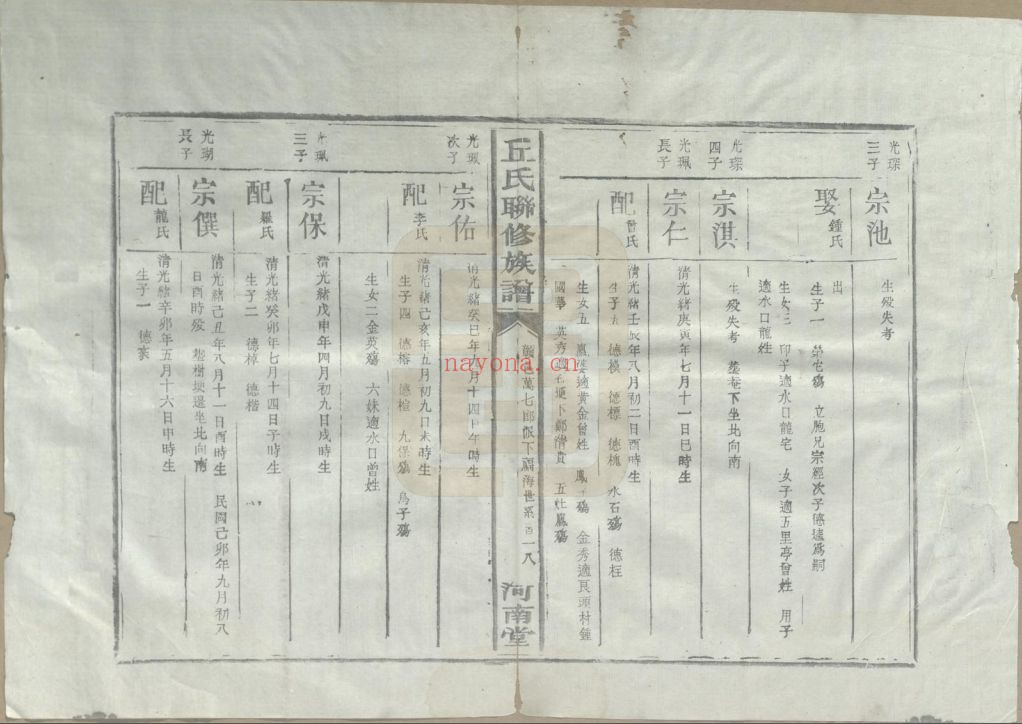 光琛
三子
宗池
生殁失考
娶鍾氏
出
生子一 殤 立胞兄宗經次子德 爲嗣
生女三 印子適水口龍宅 女子適五里亭曾姓 用子
適水口龍姓
光琛
四子
宗淇
生殁失考 葬 下坐北向南
光珮
長子
宗仁
清光緒庚寅年七月十一日巳時生
配曾氏
清光緒壬辰年八月初二日酉時生
生子五 德模 德標 德槐 水石殤 德枉
生女五 適黄金曾姓 鳳 殤 金秀適良頭村鍾
國華 英秀適 下鄭清貴 五 殤
丘氏聯修族譜
萬七郎 下 海世系
一八
河南堂
光珮
次子
宗佑
清光緒癸巳年九月十四日午時生
配李氏
清光緒己亥年五月初九日未時生
生子四 德榕 德楦 九保殤 烏子殤
生女二 金英殤 六妹適水口曾姓
光珮
三子
宗保
清光緒戊申年四月初九日戌時生
配羅氏
清光緒癸卯年七月十四日子時生
生子二 德棹 德楷
光瑚
長子
宗僎
清光緒己丑年八月十一日酉時生 民國己卯年九月初八
日酉時殁 葬樹埂邊坐北向南
配龍氏
清光緒辛卯年五月十六日申時生
生子一 德
nayona.cn